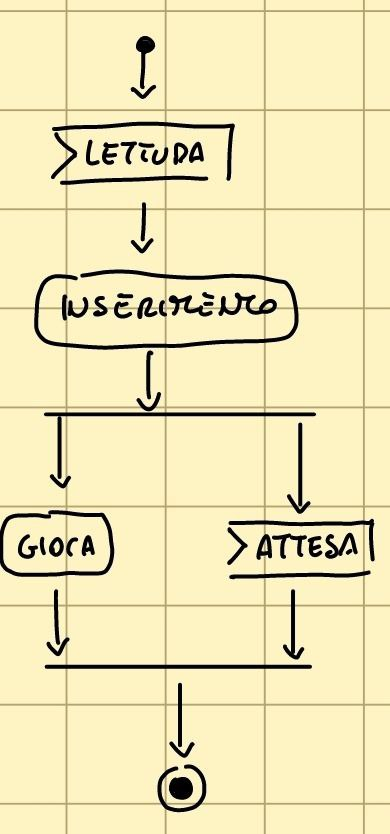 LETTURA
INSERIMENTO
GIOCA
ATTESA